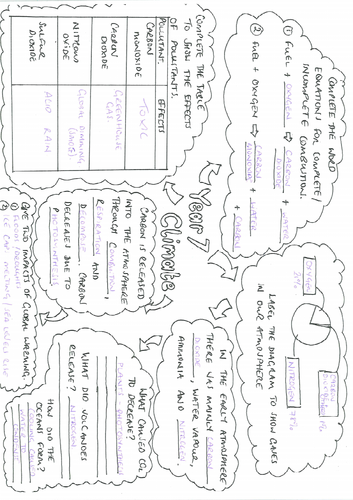 Year 7
Climate
COMPLETE THE WORD
EQUATIONS FOR COMPLETE
INCOMPLETE COMBUSTION.
① FUEL + OXYGEN ⇒ CARBON DIOXIDE + WATER
② FUEL + OXYGEN ⇒ CARBON MONOXIDE + WATER + CARBON
LABEL THE DIAGRAM TO SHOW GASES
IN OUR ATMOSPHERE
OXYGEN
NITROGEN 78%
CARBON
1%
IN THE EARLY ATMOSPHERE
THERE WAS MAINLY CARBON
DIOXIDE, WATER VAPOUR,
AMMONIA AND NITROGEN.
WHAT CAUSED CO₂
TO DECREASE?
PLANTS PHOTOSYNTHESIS
WHAT DID VOLCANOES
RELEASE? NITROGEN
HOW DID THE
OCEANS FORM?
WATER
CARBON IS RELEASED
INTO THE ATMOSPHERE
THROUGH COMBUSTION,
RESPIRATION AND
DECREASES DUE TO
PHOTOSYNTHESIS
GIVE TWO IMPACTS OF GLOBAL WARMING
① 
② ICE CAP MELTING / SEA LEVELS RISE
COMPLETE THE TABLE
TO SHOW THE EFFECTS
OF POLLUTANTS.
POLLUTANT. EFFECTS
CARBON MONOXIDE TOXIC
CARBON DIOXIDE GREENHOUSE GAS.
NITROUS OXIDE GLOBAL DIMMING (SMOG).
SULFUR DIOXIDE ACID RAIN